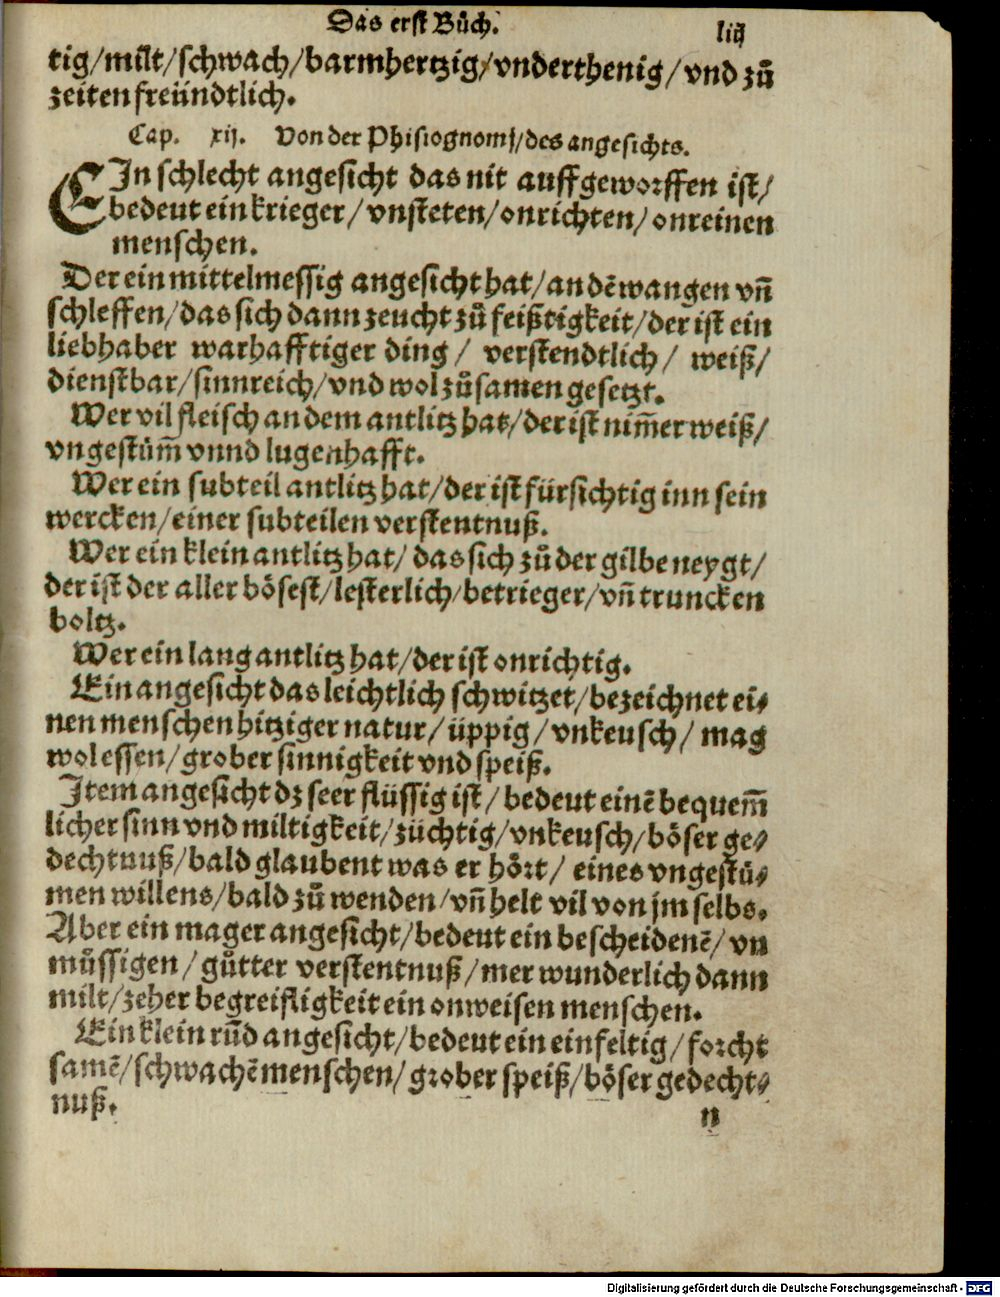 Das erst Bůch. liij
tig/milt/schwach/barmhertzig/vnderthenig/vnd zů
zeiten freündtlich.
Cap. xij. Von der Phisiognomj/des angesichts.
EIn schlecht angesicht das nit auffgeworffen ist/
bedeut ein krieger/vnsteten/onrichten/onreinen
menschen.
Der ein mittelmessig angesicht hat/an dē wangen vñ
schleffen/das sich dann zeucht zů feißtigkeit/der ist ein
liebhaber warhafftiger ding/ verstendtlich/ weiß/
dienstbar/sinnreich/vnd wol zůsamen gesetzt.
Wer vil fleisch an dem antlitz hat/der ist nim̄er weiß/
vngestüm̄ vnnd lugenhafft.
Wer ein subteil antlitz hat/der ist fürsichtig inn sein
wercken/einer subteilen verstentnuß.
Wer ein klein antlitz hat/ das sich zů der gilbe neygt/
der ist der aller bösest/lesterlich/betrieger/vñ truncken
boltz.
Wer ein lang antlitz hat/der ist onrichtig.
Ein angesicht das leichtlich schwitzet/bezeichnet ei⸗
nen menschen hitziger natur/üppig/vnkeusch/ mag
wol essen/grober sinnigkeit vnd speiß.
Item angesicht dz seer flüssig ist/bedeut einē bequem̄
licher sinn vnd miltigkeit/züchtig/vnkeusch/böser ge⸗
dechtnuß/bald glaubent was er hört/ eines vngestü⸗
men willens/bald zů wenden/vñ helt vil von jm selbs.
Aber ein mager angesicht/bedeut ein bescheidenē/vn
můssigen/gůtter verstentnuß/mer wunderlich dann
milt/zeher begreifligkeit ein onweisen menschen.
Ein klein rūd angesicht/bedeut ein einfeltig/forcht
samē/schwachē menschen/grober speiß/böser gedecht⸗
nuß.
n
Digitalisierung gefördert durch die Deutsche Forschungsgemeinschaft - DFG